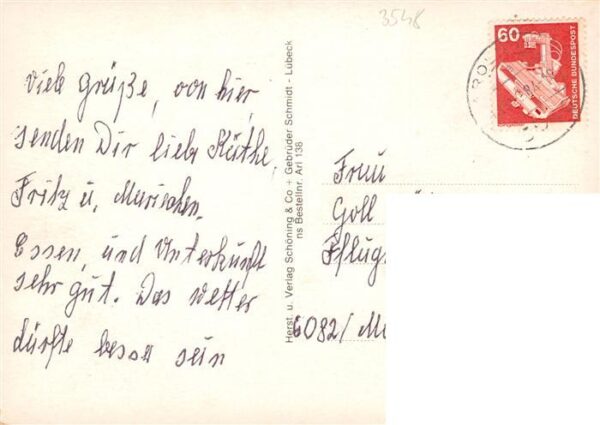 3548
60
DEUTSCHE BUNDESPOST
Viele Grüße, von hier,
senden Dir liebe Käthe
Fritz u. Mariechen.
Essen, und Unterkunft
sehr gut. Das Wetter
dürfte besser sein
Herst. u. Verlag Schöning & Co + Gebrüder Schmidt - Lübeck
ns Bestellnr. Arl 138
Frau
Goll
Pflug
6082/ Mö